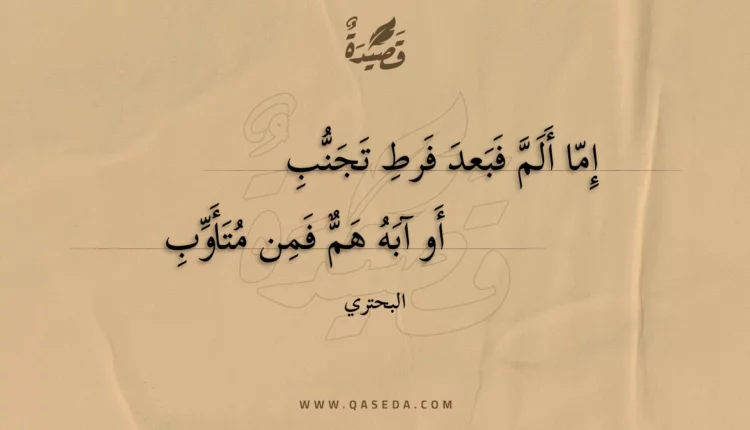 قَصِيدَةٌ
إِمّا أَلَمَّ فَبَعدَ فَرطِ تَجَنُّبِ
أَو آبَهُ هَمٌّ فَمِن مُتَأَوِّبِ
البحتري
WWW.QASEDA.COM